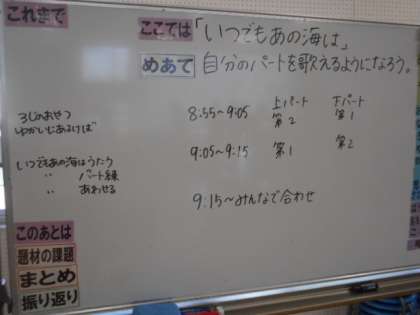 これまで
ここでは「いつでもあの海は」
めあて 自分のパートを歌えるようになろう。
上パート 下パート
3じのおやつ 8:55～9:05 第2 第1
いつでもあの海はうたう 9:05～9:15 第1 第2
〃 パート練
〃 あわせる
9:15～みんなで合わせ
このあとは
題材の課題
まとめ
振り返り